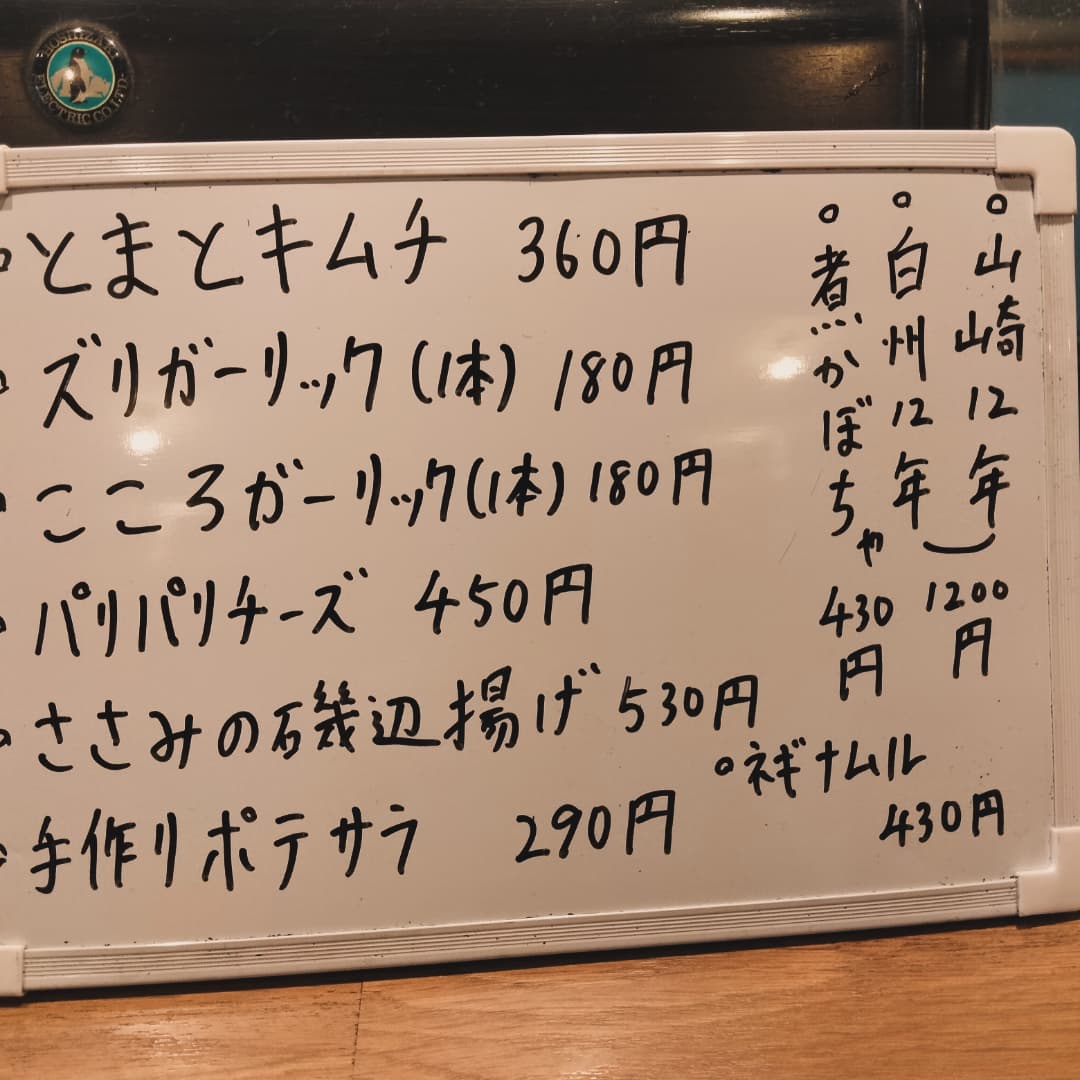 HOSHIZAKI ELECTRIC CO.LTD
とまとキムチ 360円
ズリガーリック(1本) 180円
こころガーリック(1本) 180円
パリパリチーズ 450円
ささみの磯辺揚げ 530円
手作りポテサラ 290円
山崎12年
白州12年
1200円
煮かぼちゃ 430円
ネギナムル
430円